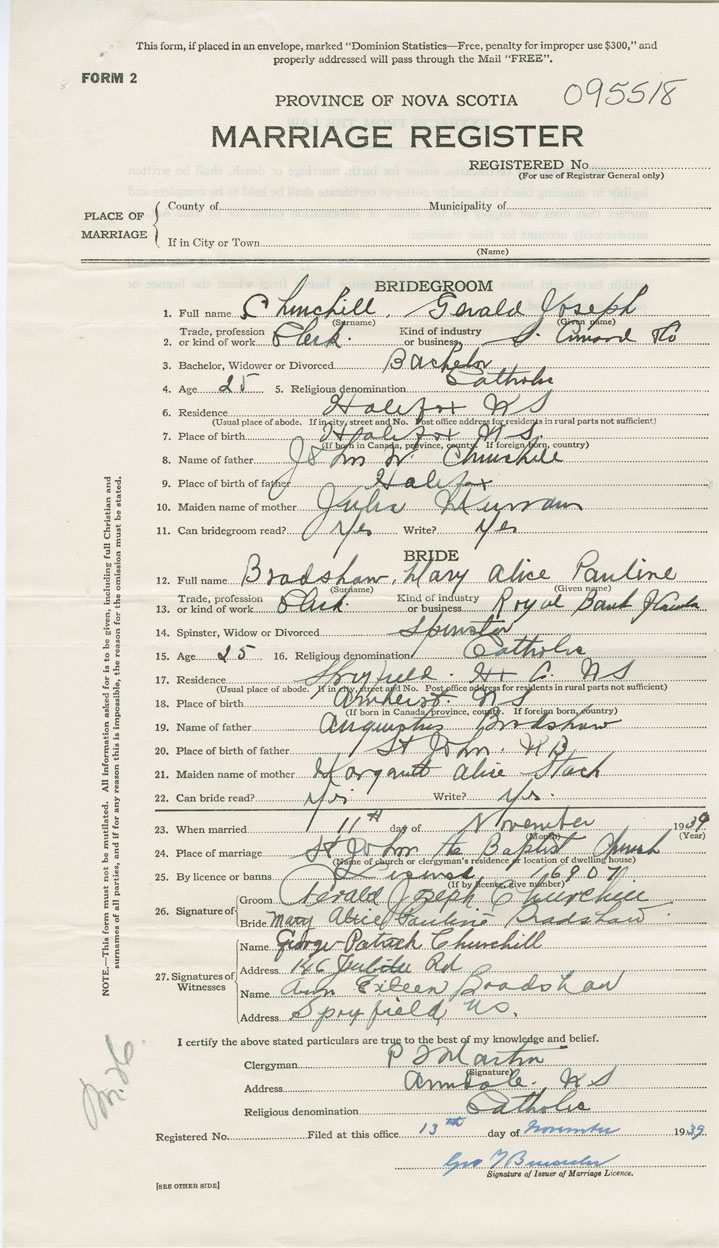 This form, if placed in an envelope, marked "Dominion Statistics—Free, penalty for improper use $300," and
properly addressed will pass through the Mail "FREE".
FORM 2
095518
PROVINCE OF NOVA SCOTIA
MARRIAGE REGISTER
REGISTERED No.
(For use of Registrar General only)
PLACE OF MARRIAGE
County of Municipality of
If in City or Town
(Name)
BRIDEGROOM
1. Full name Churchill, Gerald Joseph
(Surname) (Given name)
2. Trade, profession or kind of work Clerk. Kind of industry or business S. Co
3. Bachelor, Widower or Divorced Bachelor
4. Age 25 5. Religious denomination Catholic
6. Residence Halifax NS
(Usual place of abode. If in city, street and No. Post office address for residents in rural parts not sufficient)
7. Place of birth Halifax N.S.
(If born in Canada, province, county. If foreign born, country)
8. Name of father John W Churchill
9. Place of birth of father Halifax
10. Maiden name of mother Julia
11. Can bridegroom read? Yes Write? Yes
BRIDE
12. Full name Bradshaw, Mary Alice Pauline
(Surname) (Given name)
13. Trade, profession or kind of work Clerk. Kind of industry or business Royal Bank
14. Spinster, Widow or Divorced Spinster
15. Age 25 16. Religious denomination Catholic
17. Residence Spryfield. Hx C. NS
(Usual place of abode. If in city, street and No. Post office address for residents in rural parts not sufficient)
18. Place of birth Amherst. NS
(If born in Canada, province, county. If foreign born, country)
19. Name of father Augustus Bradshaw
20. Place of birth of father St John. N.B.
21. Maiden name of mother Margaret Alice Stack
22. Can bride read? Yes Write? Yes.
23. When married 11th day of November 1939
(Month) (Year)
24. Place of marriage St John the Baptist Church
(Name of church or clergyman's residence or location of dwelling house)
25. By licence or banns License 16907
(If by license, give number)
26. Signature of Groom Gerald Joseph Churchill
Bride Mary Alice Pauline Bradshaw
27. Signatures of Witnesses
Name George Patrick Churchill
Address 146 Jubilee Rd
Name Ann Eileen Bradshaw
Address Spryfield, N.S.
I certify the above stated particulars are true to the best of my knowledge and belief.
Clergyman P J Martin
(Signature)
Address Armdale. NS
Religious denomination Catholic
Registered No. Filed at this office 13th day of November 1939
Signature of Issuer of Marriage Licence.
[SEE OTHER SIDE]
NOTE.—This form must not be mutilated. All information asked for is to be given, including full Christian and
surnames of all parties, and if for any reason this is impossible, the reason for the omission must be stated.